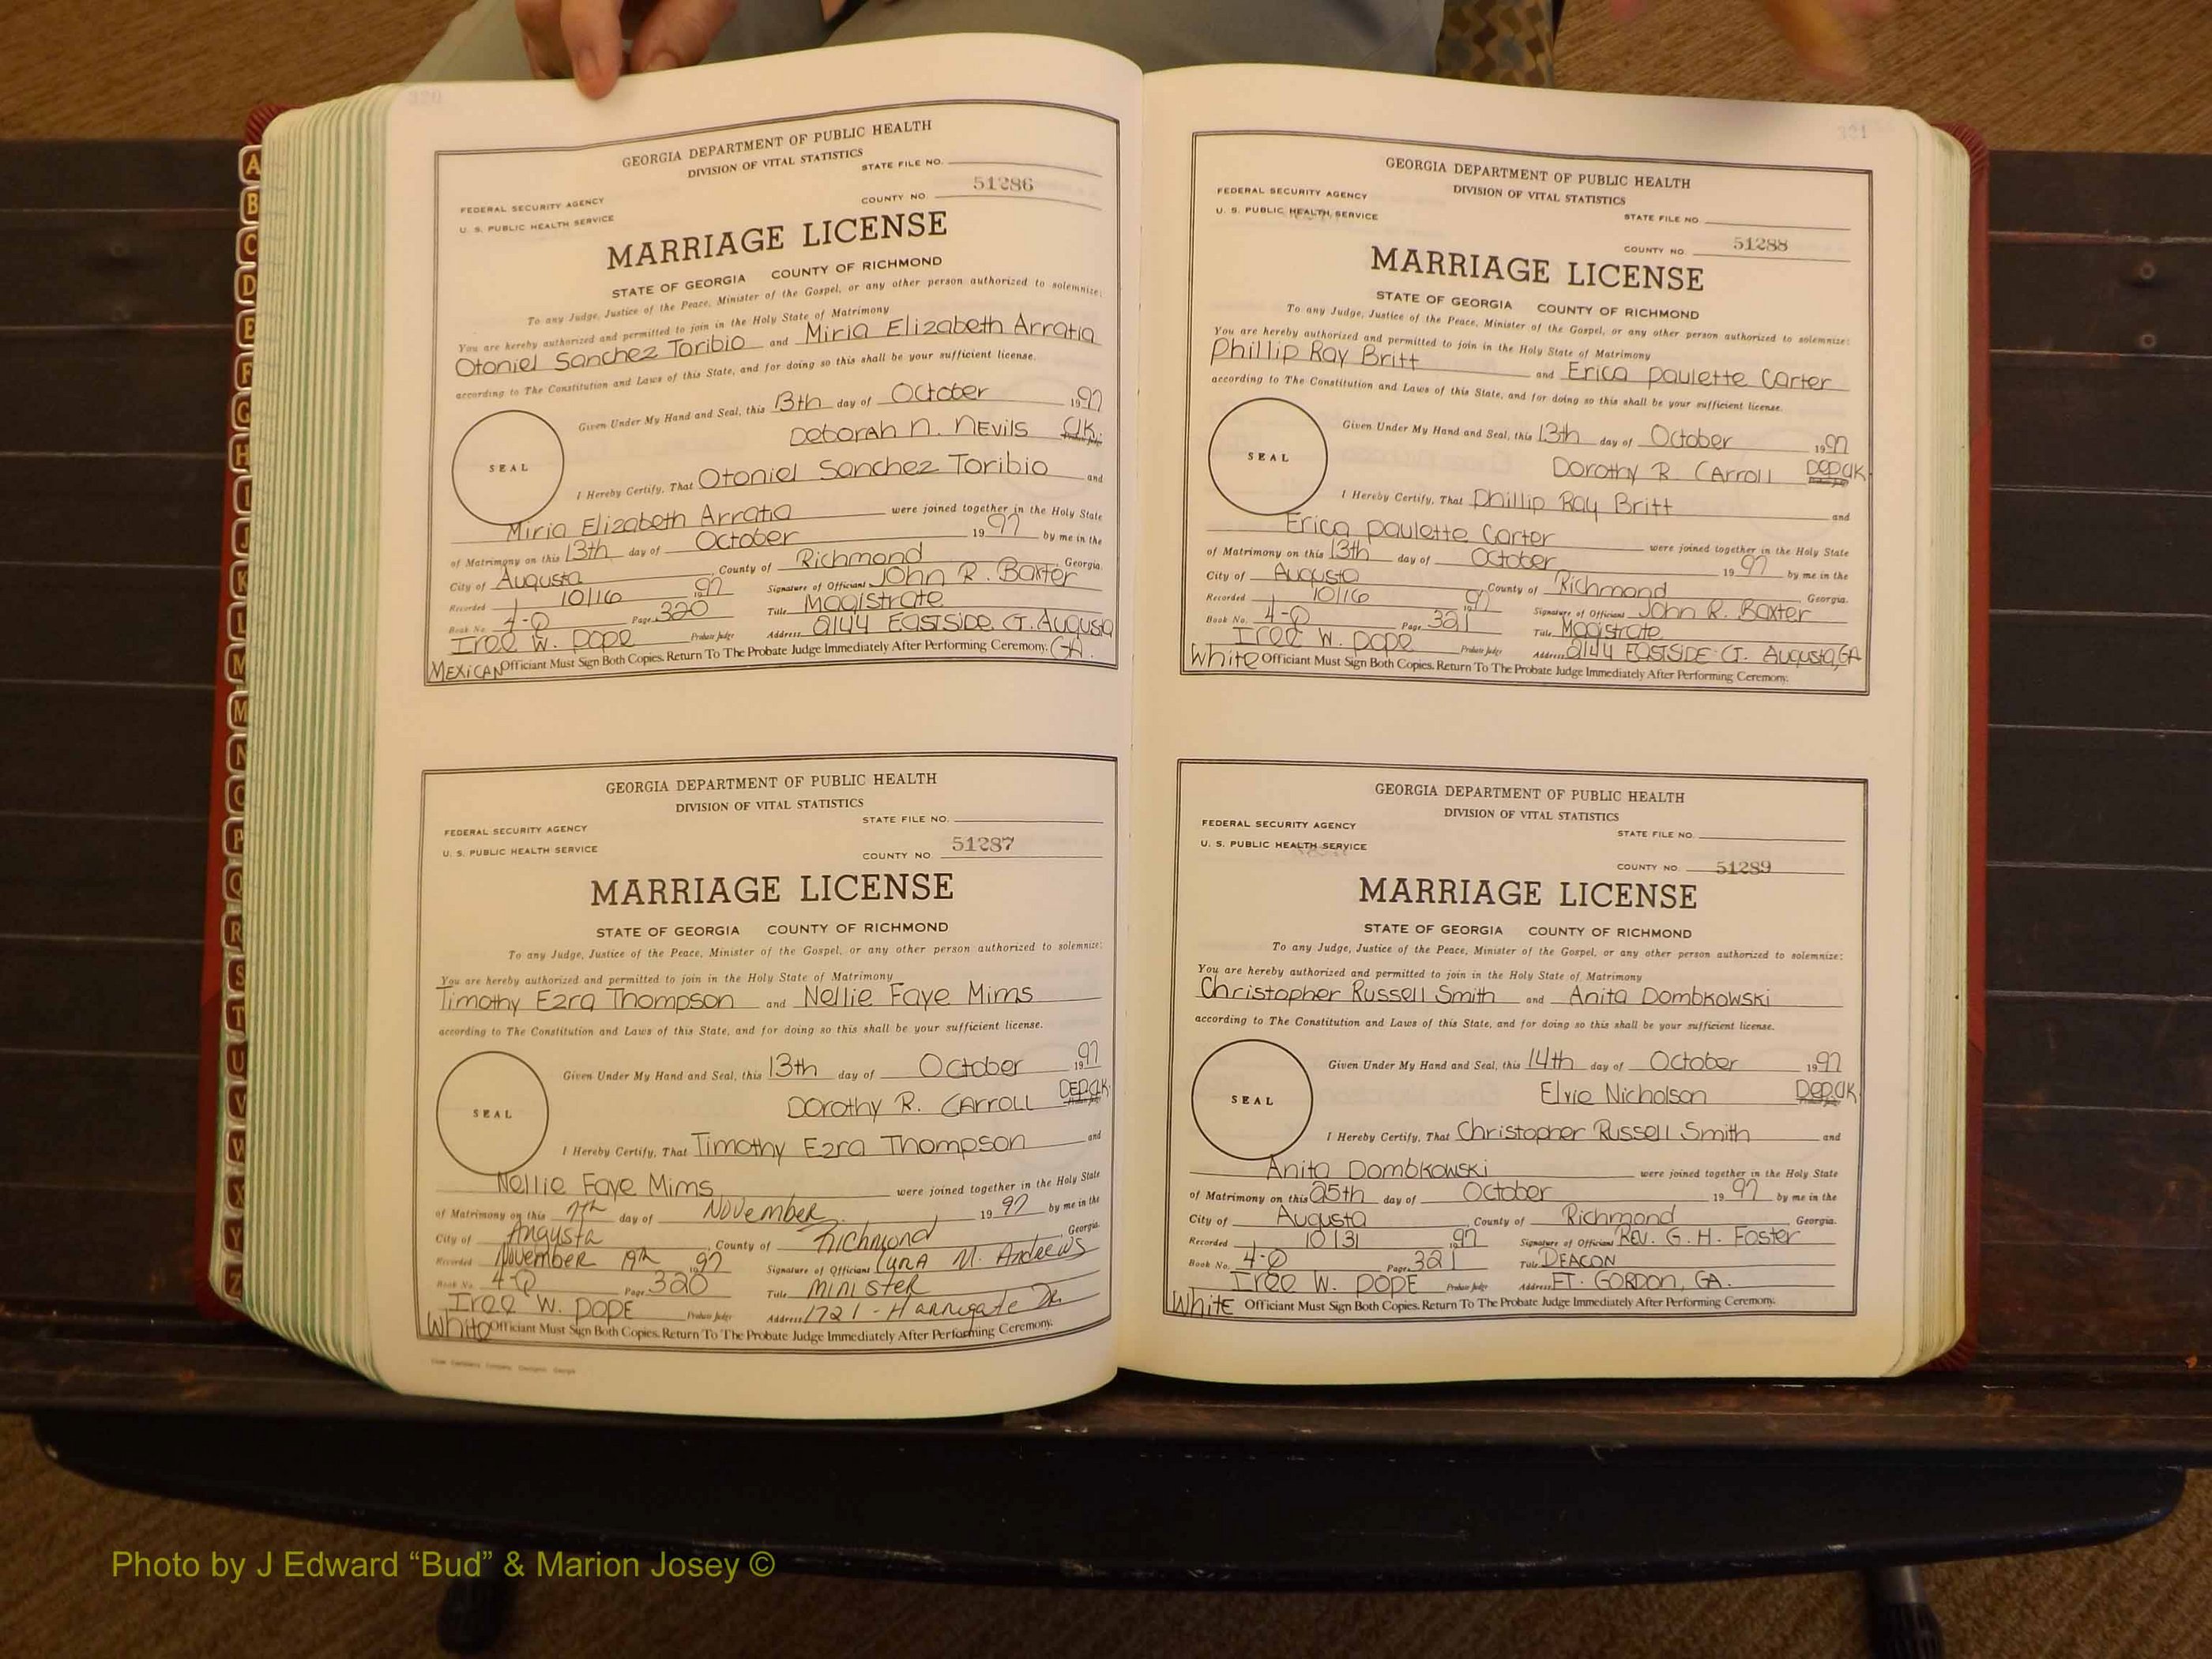 320
GEORGIA DEPARTMENT OF PUBLIC HEALTH
DIVISION OF VITAL STATISTICS
STATE FILE NO.
FEDERAL SECURITY AGENCY
COUNTY NO 51286
U. S. PUBLIC HEALTH SERVICE
MARRIAGE LICENSE
STATE OF GEORGIA COUNTY OF RICHMOND
To any Judge, Justice of the Peace, Minister of the Gospel, or any other person authorized to solemnize:
You are hereby authorized and permitted to join in the Holy State of Matrimony
Otoniel Sanchez Toribio and Miria Elizabeth Arratia
according to The Constitution and Laws of this State, and for doing so this shall be your sufficient license.
Given Under My Hand and Seal, this 13th day of October 1997
Deborah N. Nevils Clk.
SEAL
I Hereby Certify, That Otoniel Sanchez Toribio and
Miria Elizabeth Arratia were joined together in the Holy State
of Matrimony on this 13th day of October 1997 by me in the
City of Augusta, County of Richmond, Georgia.
Recorded 10/16 1997 Signature of Officiant John R. Baxter
Book No. 4-Q Page 320 Title Magistrate
Iree W. Pope Probate Judge Address 2144 Eastside Ct. Augusta
MEXICAN Officiant Must Sign Both Copies. Return To The Probate Judge Immediately After Performing Ceremony. GA.
GEORGIA DEPARTMENT OF PUBLIC HEALTH
DIVISION OF VITAL STATISTICS
STATE FILE NO.
FEDERAL SECURITY AGENCY
U. S. PUBLIC HEALTH SERVICE
COUNTY NO 51287
MARRIAGE LICENSE
STATE OF GEORGIA COUNTY OF RICHMOND
To any Judge, Justice of the Peace, Minister of the Gospel, or any other person authorized to solemnize:
You are hereby authorized and permitted to join in the Holy State of Matrimony
Timothy Ezra Thompson and Nellie Faye Mims
according to The Constitution and Laws of this State, and for doing so this shall be your sufficient license.
Given Under My Hand and Seal, this 13th day of October 1997
Dorothy R. Carroll Dep.Clk.
SEAL
I Hereby Certify, That Timothy Ezra Thompson and
Nellie Faye Mims were joined together in the Holy State
of Matrimony on this 7th day of November 1997 by me in the
City of Augusta, County of Richmond Georgia.
Recorded November 19th 1997 Signature of Officiant M. Andrews
Book No. 4-Q Page 320 Title Minister
Iree W. Pope Probate Judge Address 1721 - Harrigate Dr.
White Officiant Must Sign Both Copies. Return To The Probate Judge Immediately After Performing Ceremony.
321
GEORGIA DEPARTMENT OF PUBLIC HEALTH
DIVISION OF VITAL STATISTICS
FEDERAL SECURITY AGENCY
U. S. PUBLIC HEALTH SERVICE
STATE FILE NO
COUNTY NO 51288
MARRIAGE LICENSE
STATE OF GEORGIA COUNTY OF RICHMOND
To any Judge, Justice of the Peace, Minister of the Gospel, or any other person authorized to solemnize:
You are hereby authorized and permitted to join in the Holy State of Matrimony
Phillip Ray Britt and Erica Paulette Carter
according to The Constitution and Laws of this State, and for doing so this shall be your sufficient license.
Given Under My Hand and Seal, this 13th day of October 1997
Dorothy R. Carroll Dep.Clk.
SEAL
I Hereby Certify, That Phillip Ray Britt and
Erica Paulette Carter were joined together in the Holy State
of Matrimony on this 13th day of October 1997 by me in the
City of Augusta, County of Richmond, Georgia.
Recorded 10/16 1997 Signature of Officiant John R. Baxter
Book No. 4-Q Page 321 Title Magistrate
Iree W. Pope Probate Judge Address 2144 Eastside Ct. Augusta, GA
White Officiant Must Sign Both Copies. Return To The Probate Judge Immediately After Performing Ceremony.
GEORGIA DEPARTMENT OF PUBLIC HEALTH
DIVISION OF VITAL STATISTICS
FEDERAL SECURITY AGENCY
STATE FILE NO
U. S. PUBLIC HEALTH SERVICE
COUNTY NO 51289
MARRIAGE LICENSE
STATE OF GEORGIA COUNTY OF RICHMOND
To any Judge, Justice of the Peace, Minister of the Gospel, or any other person authorized to solemnize:
You are hereby authorized and permitted to join in the Holy State of Matrimony
Christopher Russell Smith and Anita Dombkowski
according to The Constitution and Laws of this State, and for doing so this shall be your sufficient license.
Given Under My Hand and Seal, this 14th day of October 1997
Elvie Nicholson Dep.Clk.
SEAL
I Hereby Certify, That Christopher Russell Smith and
Anita Dombkowski were joined together in the Holy State
of Matrimony on this 25th day of October 1997 by me in the
City of Augusta, County of Richmond, Georgia.
Recorded 10/31 1997 Signature of Officiant Rev. G. H. Foster
Book No. 4-Q Page 321 Title Deacon
Iree W. Pope Probate Judge Address Ft. Gordon, GA.
White Officiant Must Sign Both Copies. Return To The Probate Judge Immediately After Performing Ceremony.
A
B
C
D
E
F
G
H
I
J
K
L
M
M
N
O
P
Q
R
S
T
U
V
W
X
Y
Z
Photo by J Edward “Bud” & Marion Josey ©